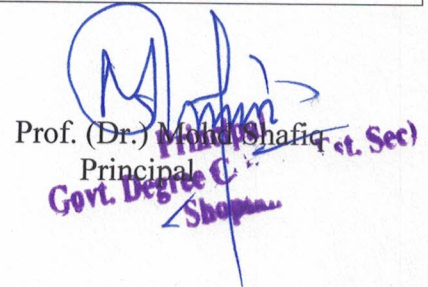 Prof. (Dr.) Mohd Shafiq
Principal
Principal
Govt. Degree C st. Sec)